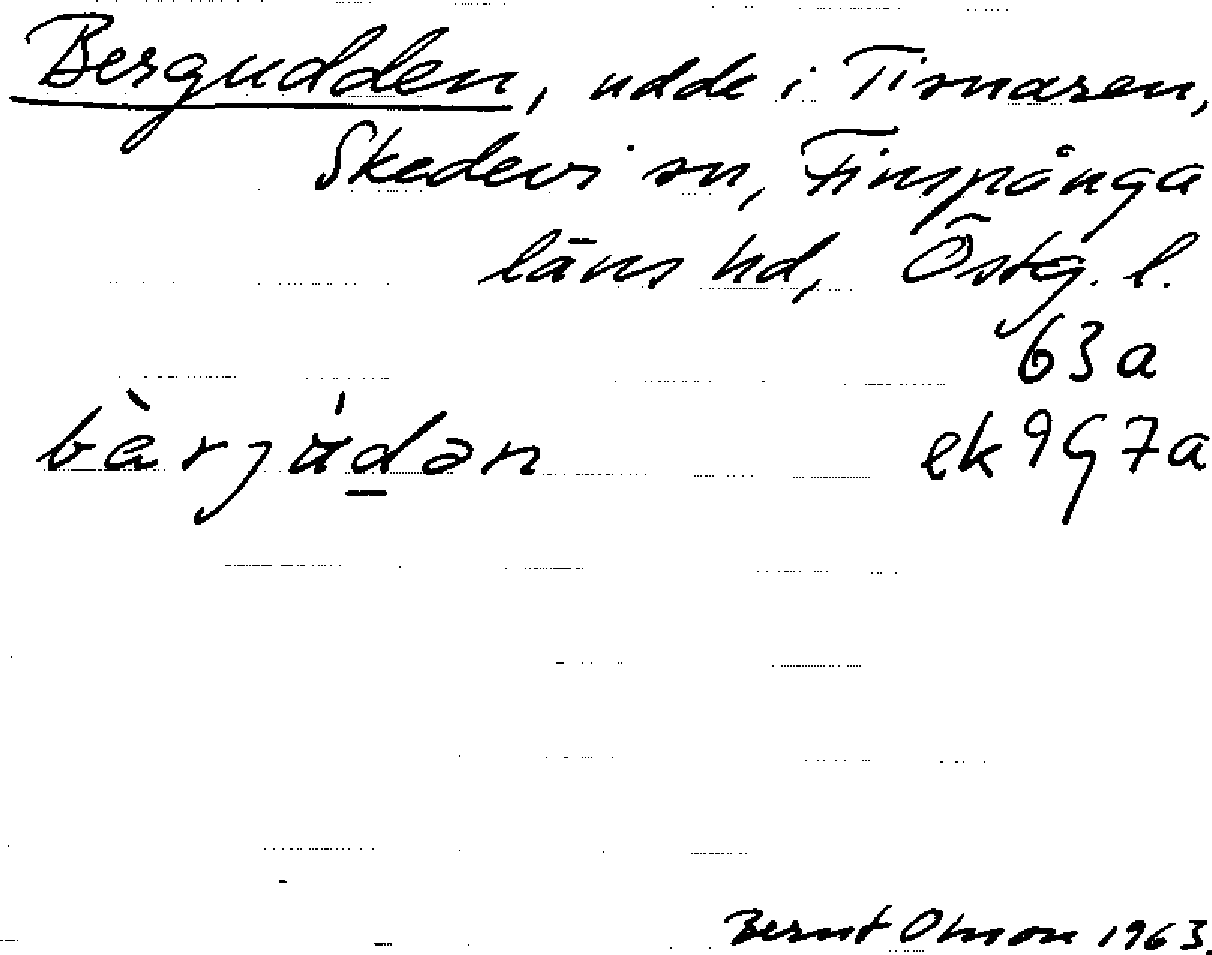 Bergudden, udde i Tisnaren,
Skedevi sn, Finspånga
läns hd, Östg. l.
63a
bàrjúdən ek 9G7a
Bernt Olsson 1963.